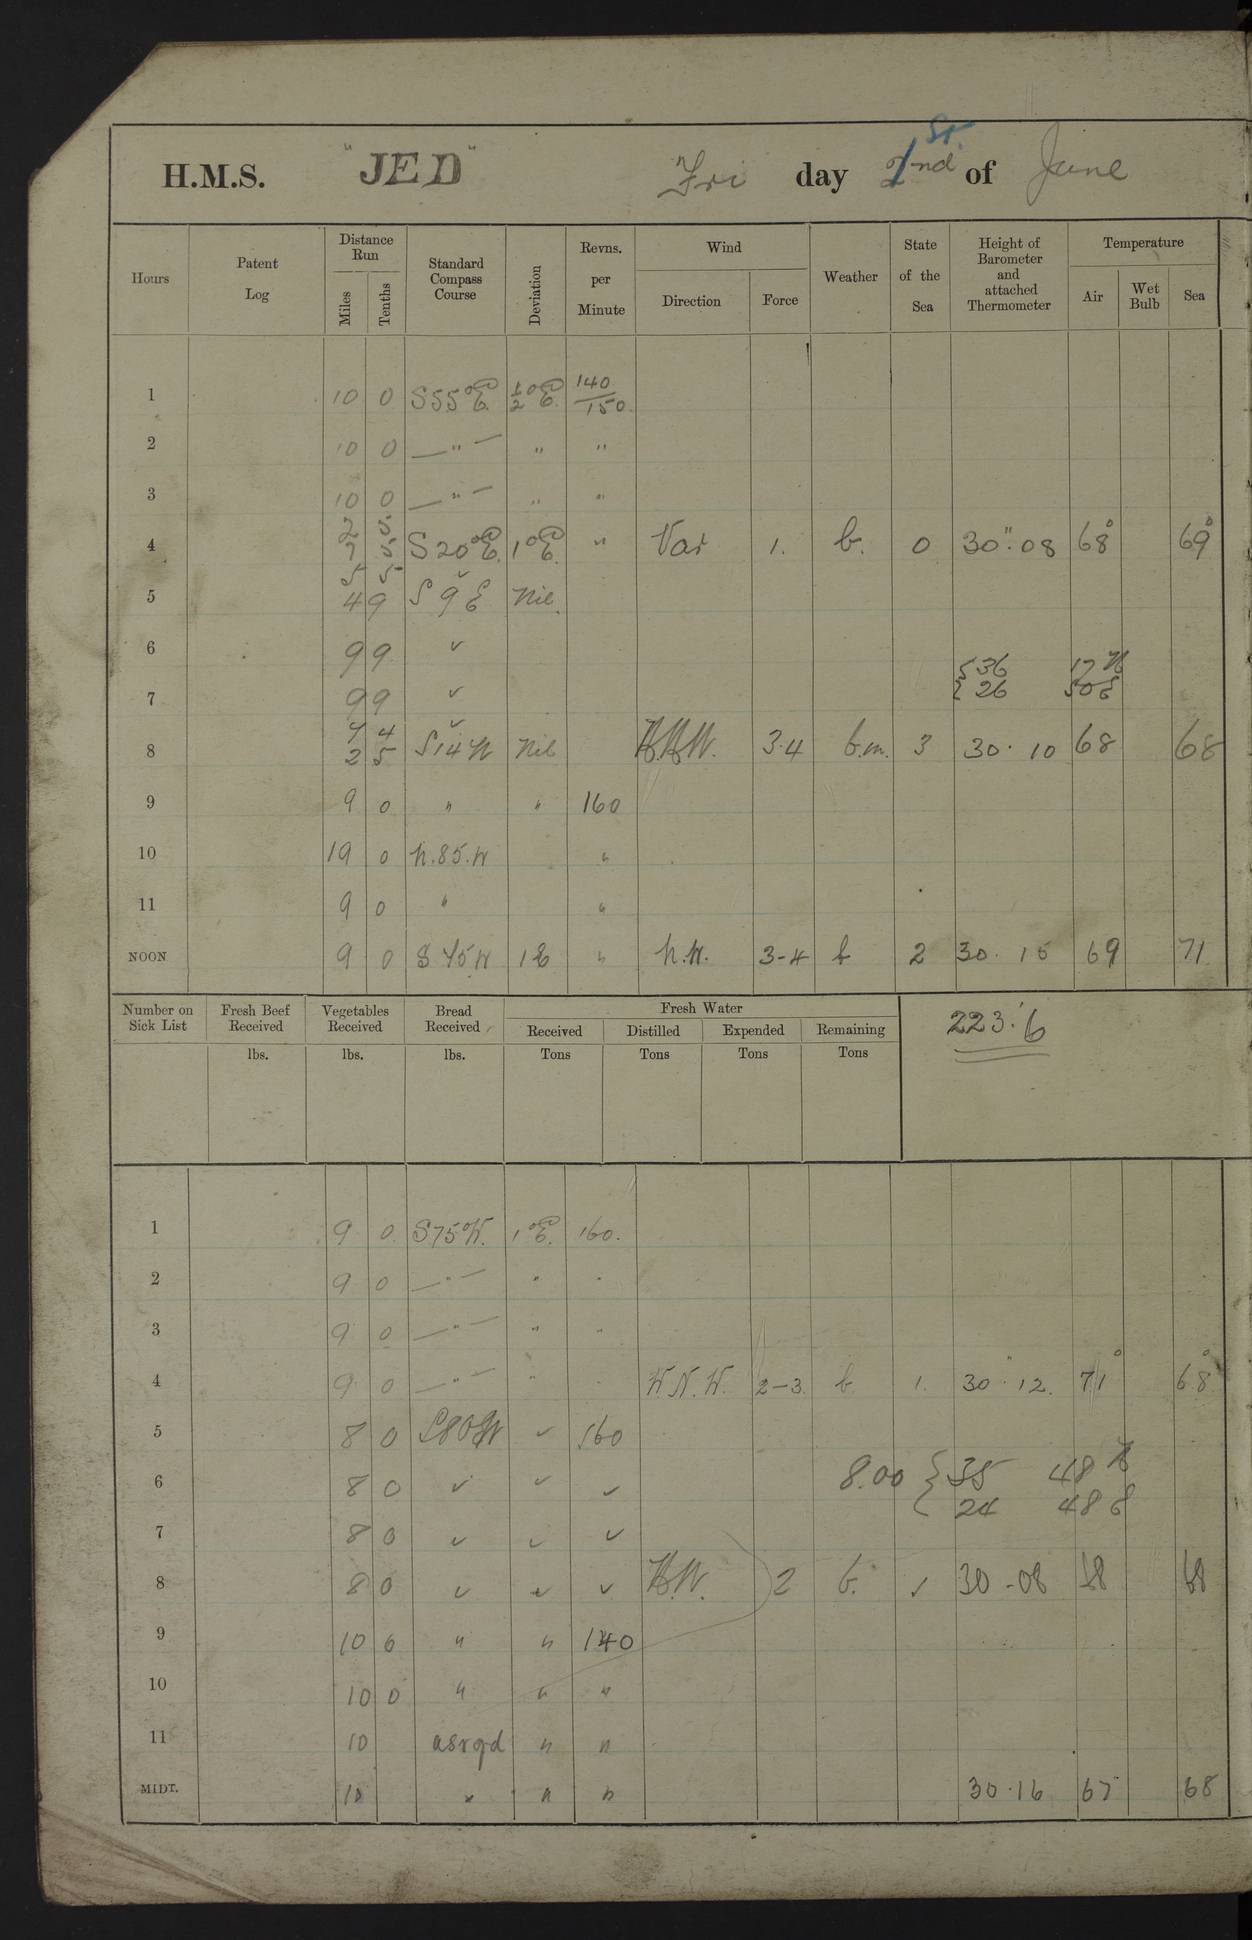 H.M.S. "JED" Fri day 1st of June
Hours Patent Log Distance Run Miles Tenths Standard Compass Course Deviation Revns. per Minute Wind Direction Force Weather State of the Sea Height of Barometer and attached Thermometer Temperature Air Wet Bulb Sea
1 10 0 S55°E. ½°E. 140/150
2 10 0 —"— " "
3 10 0 —"— " "
4 2 5. 7 5. S20°E. 1°E. " Var 1. b. 0 30".08 68° 69°
5 5 5 4 9 S 9 E Nil.
6 9 9 ✓
{36 17 N
7 9 9 ✓
{26 50 E
8 7 4 2 5 S14W Nil 3.4 b.m. 3 30.10 68 68
9 9 0 " " 160
10 19 0 N.85.W "
11 9 0 " "
NOON 9 0 S 45 W 1E " N.W. 3-4 b 2 30.15 69 71
Number on Sick List Fresh Beef Received Vegetables Received Bread Received Fresh Water Received Distilled Expended Remaining
lbs. lbs. lbs. Tons Tons Tons Tons
223.6
1 9 0 S75°W. 1°E. 160.
2 9 0 —"— " "
3 9 0 —"— " "
4 9 0 —"— " " W.N.W. 2-3 b 1. 30".12. 71° 68°
5 8 0 S80W ✓ 160
6 8 0 ✓ ✓ ✓ 8.00 {35 48 N
24 48 E
7 8 0 ✓ ✓ ✓
8 8 0 ✓ ✓ ✓ 2 b. 1 30.08 68 68
9 10 0 " " 140
10 10 0 " " "
11 10 asrqd " "
MIDT. 10 " " " 30.16 67 68